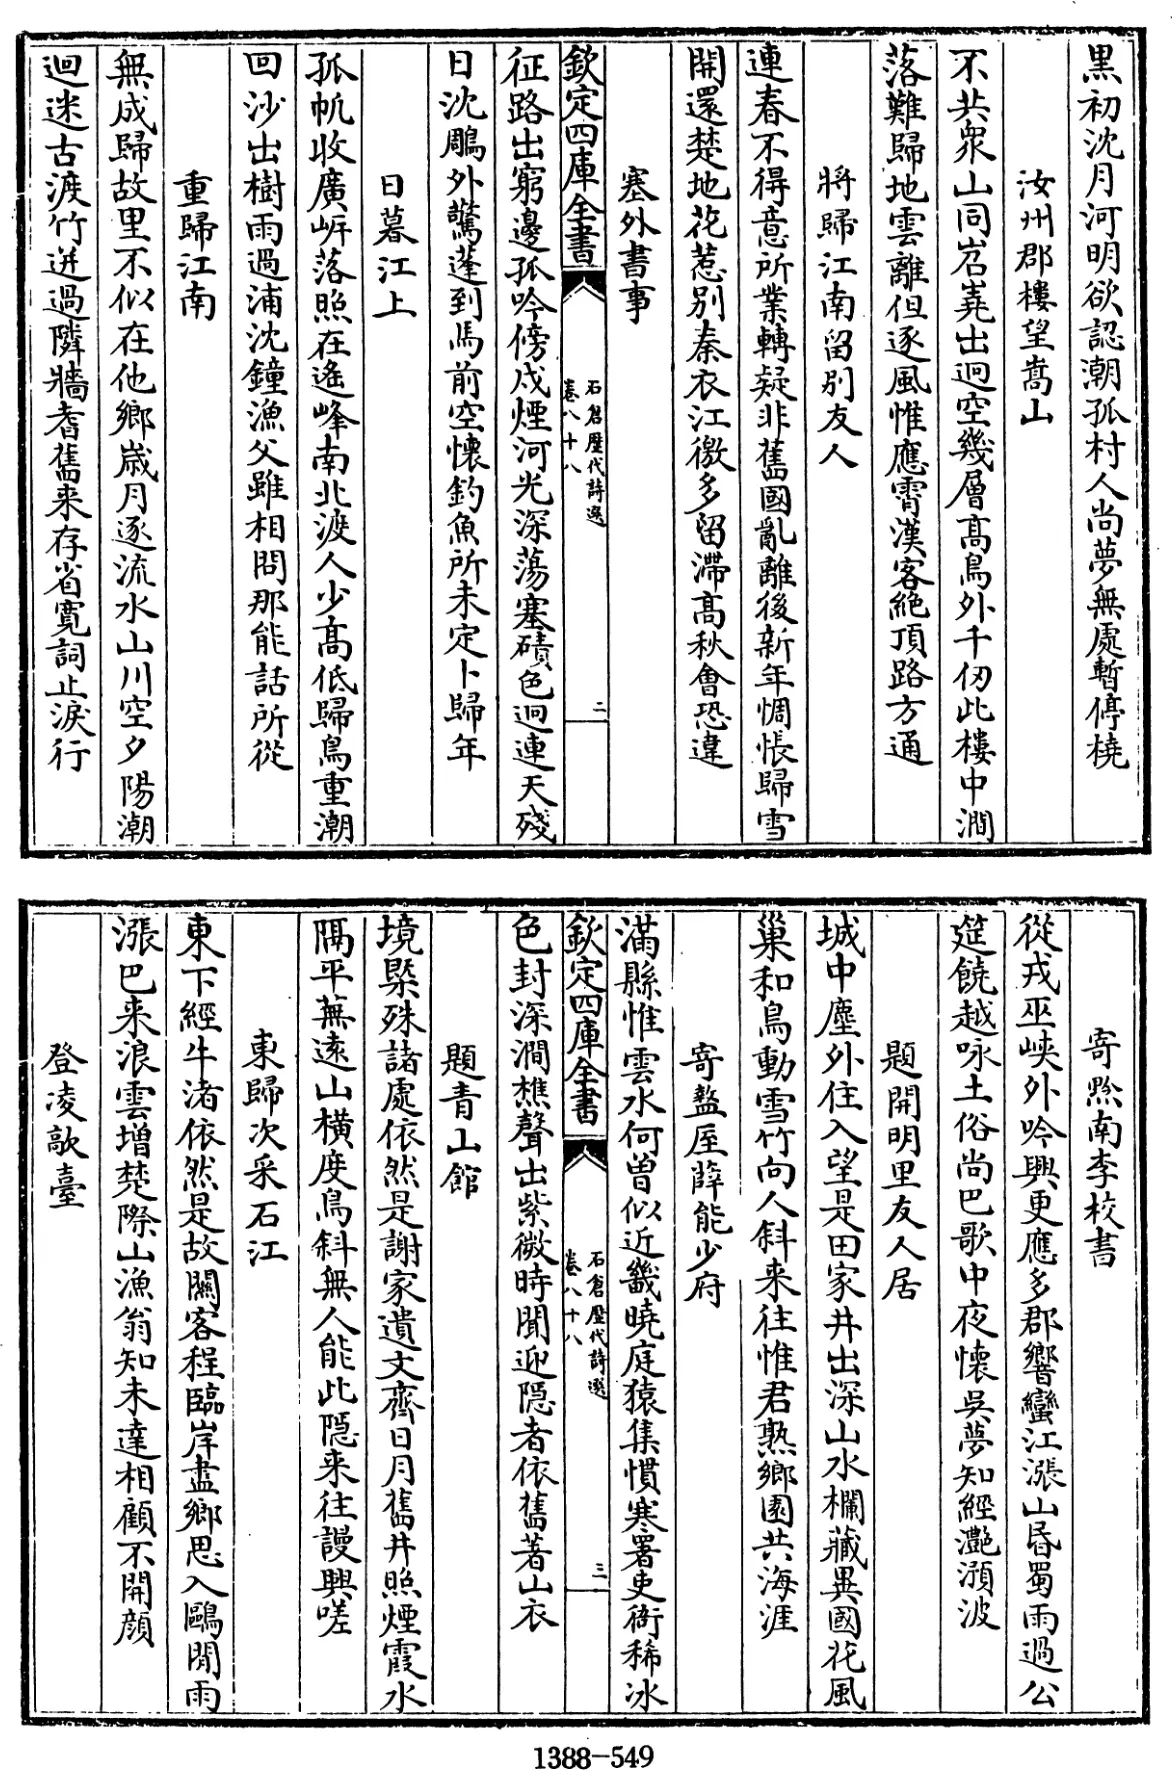 黒初沈月河明欲認潮孤村人尚夢無處暫停橈
汝州郡樓望嵩山
不共衆山同岧嶤出迥空幾層髙鳥外千仞此樓中澗
落難歸地雲離但逐風惟應霄漢客絶頂路方通
將歸江南留别友人
連春不得意所業轉疑非舊國亂離後新年惆悵歸雪
開還楚地花惹别秦衣江徼多留滯高秋會恐違
塞外書事
欽定四庫全書
石倉歴代詩選
卷八十八
二
征路出窮邊孤吟傍戍煙河光深蕩塞磧色迥連天殘
日沈鵰外驚蓬到馬前空懷釣魚所未定卜歸年
日暮江上
孤帆收廣岸落照在遙峰南北渡人少高低歸鳥重潮
回沙出樹雨過浦沈鐘漁父雖相問那能話所從
重歸江南
無成歸故里不似在他鄉歳月逐流水山川空夕陽潮
迴迷古渡竹迸過隣牆耆舊来存省寛詞止淚行
寄黔南李校書
從戎巫峽外吟興更應多郡響蠻江漲山昏蜀雨過公
筵饒越咏土俗尚巴歌中夜懷吳夢知經灔澦波
題開明里友人居
城中塵外住入望是田家井出深山水欄藏異國花風
巢和鳥動雪竹向人斜来往惟君熟鄉園共海涯
寄盩厔薛能少府
滿縣惟雲水何曾似近畿曉庭猿集慣寒署吏衙稀冰
欽定四庫全書
石倉歴代詩選
卷八十八
三
色封深澗樵聲出紫微時聞迎隠者依舊著山衣
題青山館
境槩殊諸處依然是謝家遺文齊日月舊井照煙霞水
隔平蕪遠山横度鳥斜無人能此隠来往謾興嗟
東歸次采石江
東下經牛渚依然是故關客程臨岸盡鄉思入鷗閒雨
漲巴来浪雲增楚際山漁翁知未達相顧不開顔
登凌歊臺
1388-549